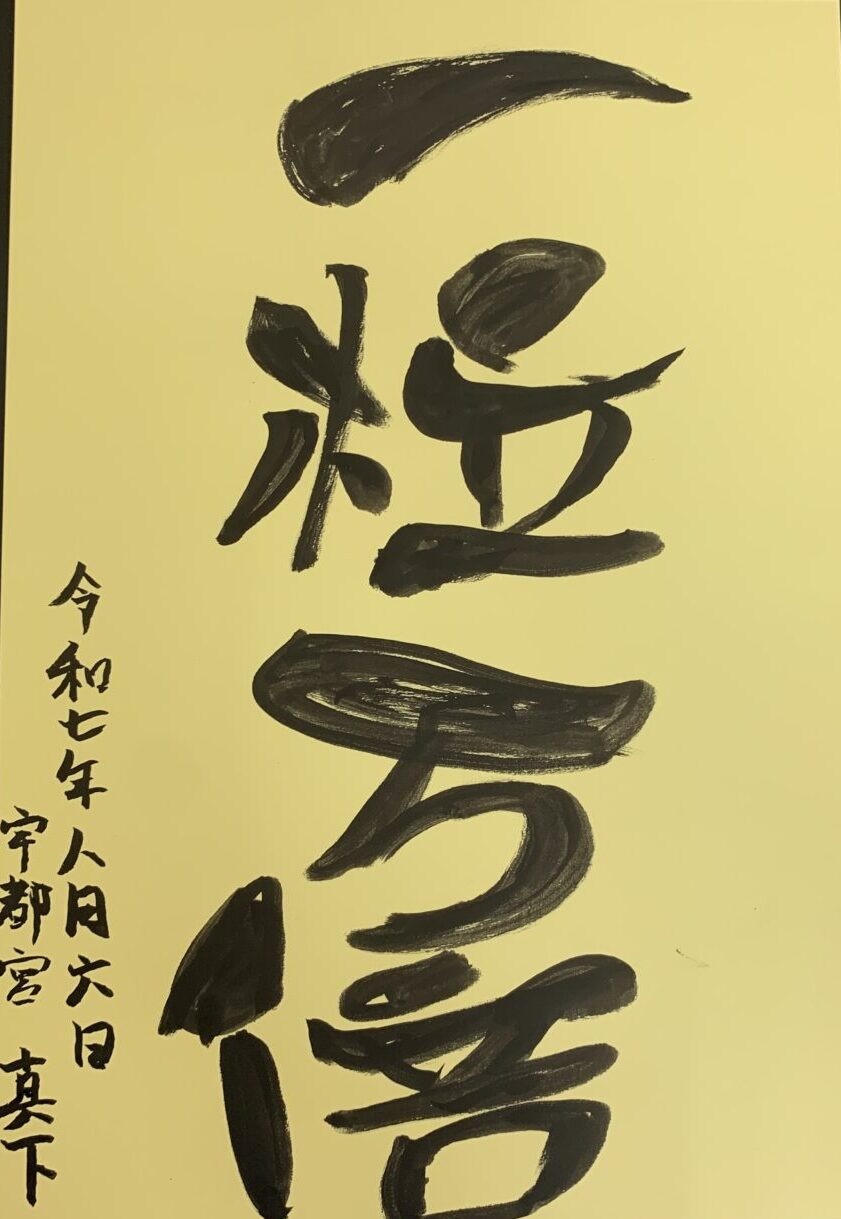 一粒万倍
令和七年八月六日
宇都宮 真下